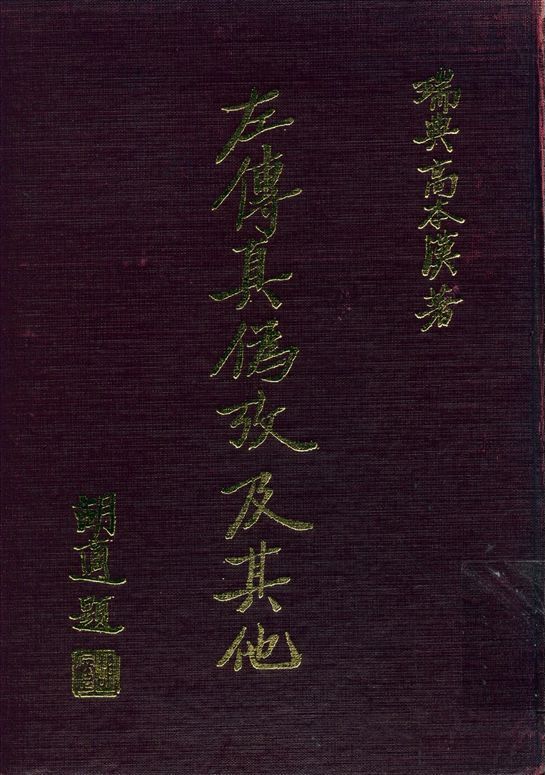 瑞典高本漢著
左傳真偽攷及其他
胡適題